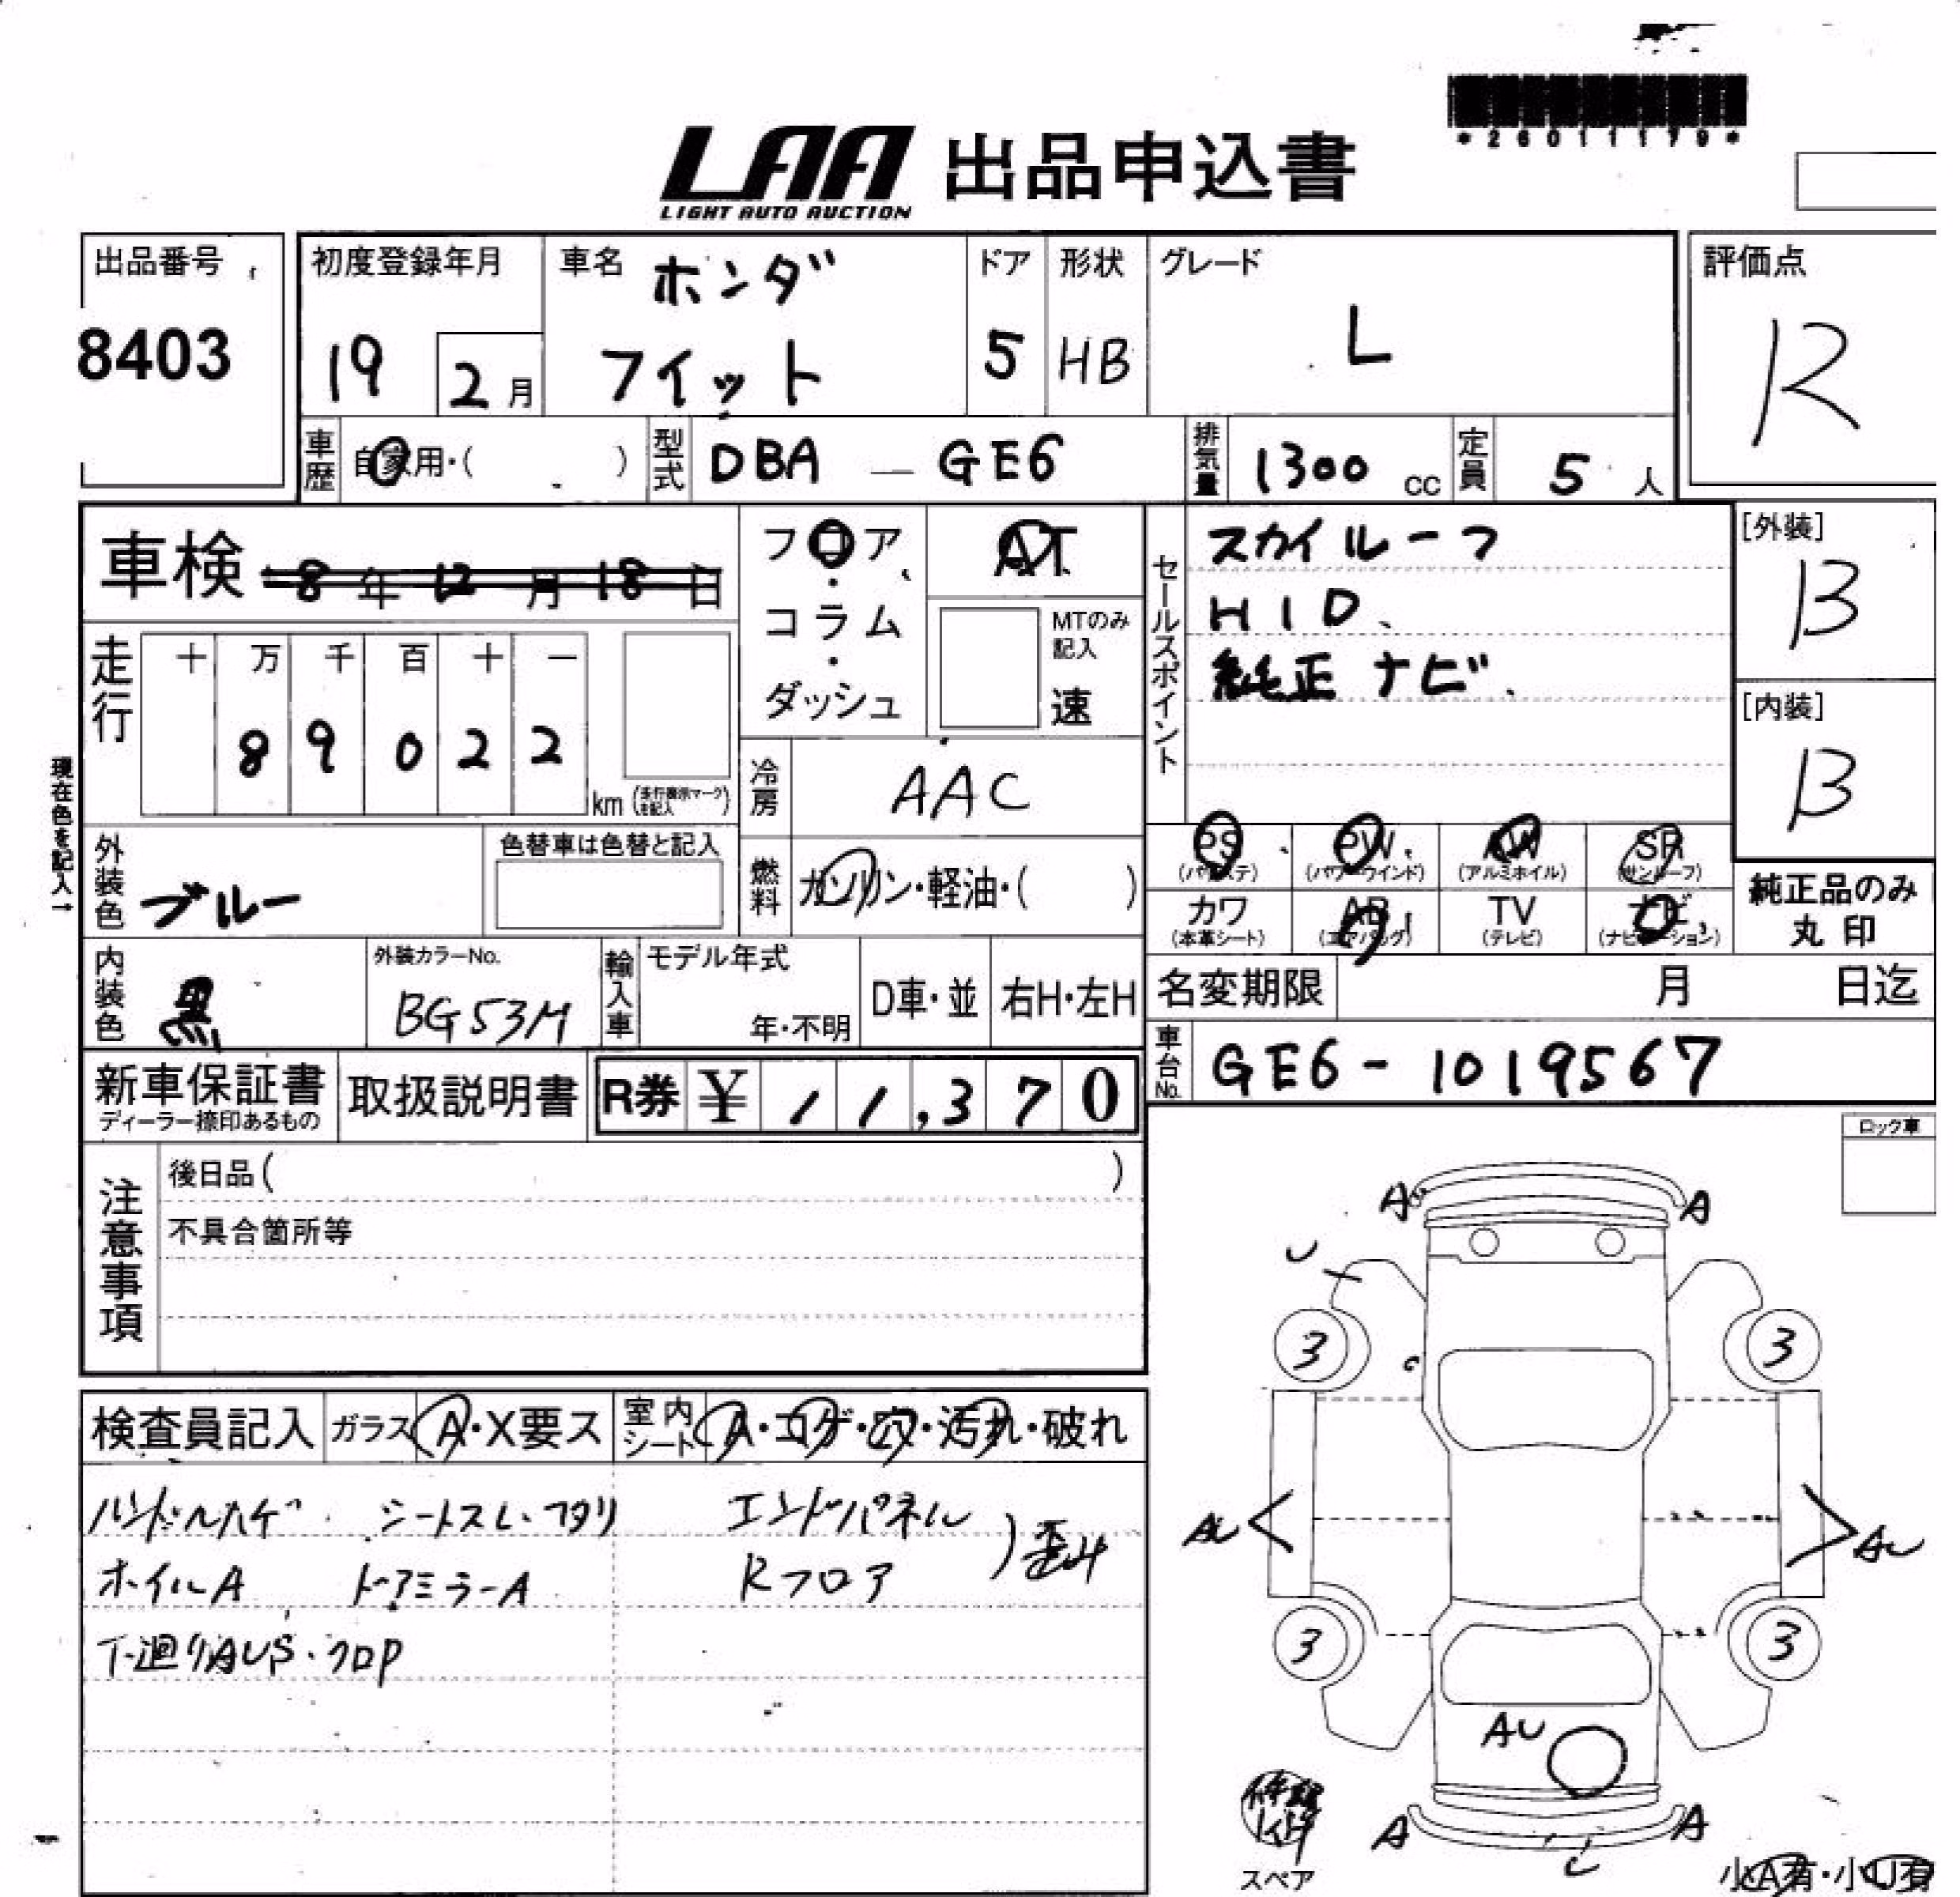 *26011179*
LAA 出品申込書
LIGHT AUTO AUCTION
出品番号
8403
初度登録年月
19 2月
車名 ホンダ
フィット
ドア
5
形状
HB
グレード
L
評価点
R
車歴 自家用・( )
型式 DBA - GE6
排気量 1300 cc
定員 5 人
車検 8年 12月 18日
フロア・コラム・ダッシュ
AT
MTのみ記入
速
セールスポイント
スカイルーフ
HID、
純正ナビ、
[外装]
B
[内装]
B
走行
十 万 千 百 十 一
8 9 0 2 2
km (走行表示マークを記入)
現在色を記入→
冷房 AAC
外装色 ブルー
色替車は色替と記入
燃料 ガソリン・軽油・( )
PS PW AW SR
(パワステ) (パワーウインド) (アルミホイル) (サンルーフ)
カワ AB TV ナビ
(本革シート) (エアバッグ) (テレビ) (ナビゲーション)
純正品のみ
丸印
内装色 黒
外装カラーNo.
BG53M
輸入車
モデル年式
年・不明
D車・並
右H・左H
名変期限 月 日迄
車台No. GE6-1019567
新車保証書
ディーラー捺印あるもの
取扱説明書
R券 ¥11,370
ロック車
注意事項
後日品( )
不具合箇所等
検査員記入
ガラス A・X要ス
室内シート A・コゲ・穴・汚れ・破れ
ハンドルハゲ シートスレ・フタリ
エンドパネル
ホイルA ドアミラーA
Rフロア
)歪み
下廻りAUS・クロP
A A
U
3 3
AU AU
3 3
AU
A A
U
スペア
小A有・小U有